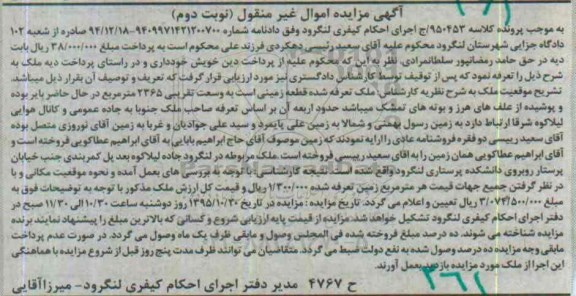 آگهی مزایده اموال غیر منقول (نوبت دوم)
به موجب پرونده کلاسه ۹۵۰۴۵۳/ج اجرای احکام کیفری لنگرود وفق دادنامه شماره ۹۴۰۹۹۷۱۴۲۱۲۰۰۷۰۰-۹۴/۱۲/۱۸ صادره از شعبه ۱۰۲
دادگاه جزایی شهرستان لنگرود محکوم علیه آقای سعید رئیسی دهکردی فرزند علی محکوم است به پرداخت مبلغ ۳۸/۰۰۰/۰۰۰ ریال بابت
دیه در حق حامد رمضانپور سلطانمرادی. نظر به این که محکوم علیه از پرداخت دین خویش خودداری و در راستای پرداخت دیه ملک به
شرح ذیل را تعرفه نمود که پس از توقیف توسط کارشناس دادگستری نیز مورد ارزیابی قرار گرفت که تعریف و توصیف آن بقرار ذیل میباشد.
تشریح موقعیت ملک به شرح نظریه کارشناس: ملک تعرفه شده قطعه زمینی است به وسعت تقریبی ۲۳۶۵ مترمربع در حال حاضر بایر بوده
و پوشیده از علف های هرز و بوته های تمشک میباشد حدود اربعه آن بر اساس تعرفه صاحب ملک جنوبا به جاده عمومی و کانال هوایی
لیلاکوه شرقا ارتباط دارد به زمین رسول بهمنی و شمالا به زمین علی پایمرد و سید علی جوادیان و غربا به زمین آقای نوروزی متصل بوده
آقای سعید رییسی دو فقره فروشنامه عادی را ارایه نمودند که زمین موصوف آقای حاج ابراهیم بابایی به آقای ابراهیم عطاکویی فروخته است و
آقای ابراهیم عطاکویی همان زمین را به آقای سعید رییسی فروخته است. ملک مربوطه در لنگرود جاده لیلاکوه بعد پل کمربندی جنب خیابان
پرستار روبروی دانشکده پرستاری لنگرود واقع شده است. نتیجه کارشناسی: با توجه به بررسی های بعمل آمده و نحوه موقعیت مکانی و با
در نظر گرفتن جمیع جهات قیمت هر مترمربع زمین تعرفه شده ۱/۳۰۰/۰۰۰ ریال و قیمت کل ارزش ملک مذکور با توجه به توضیحات فوق به
مبلغ ۳/۰۷۴/۵۰۰/۰۰۰ ریال تعیین و اعلام می گردد. تاریخ مزایده: مزایده در تاریخ ۱۳۹۵/۱۰/۳۰ روز دوشنبه ساعت ۱۰/۳۰ الی ۱۱/۳۰ صبح در
دفتر اجرای احکام کیفری لنگرود تشکیل خواهد شد. مزایده از قیمت پایه ارزیابی شروع و کسانی که بالاترین مبلغ را پیشنهاد نمایند برنده
مزایده شناخته می شوند. ده درصد مبلغ فروخته شده فی المجلس وصول و مابقی ظرف یک ماه وصول می گردد. در صورت عدم پرداخت
مابقی وجه مزایده ده درصد وصول شده به نفع دولت ضبط می گردد. متقاضیان می توانند ظرف مدت پنج روز قبل از شروع مزایده با هماهنگی
این اجرا از ملک مورد مزایده بازدید بعمل آورند.
ح ۴۷۶۷ مدیر دفتر اجرای احکام کیفری لنگرود- میرزاآقایی